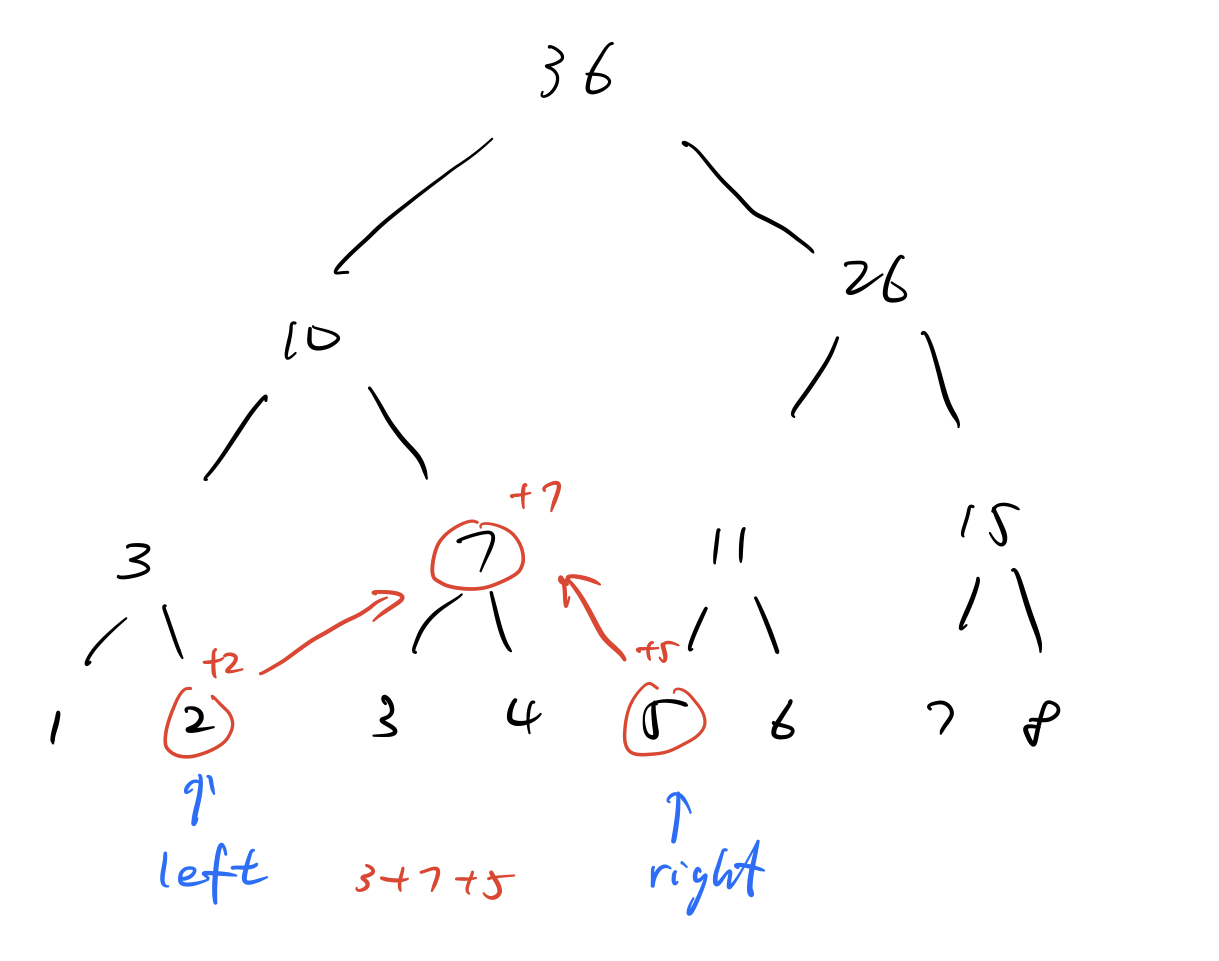 36
26
10
+7
3 7 11 15
+2 +5
1 2 3 4 5 6 7 8
left 3+7+5 right